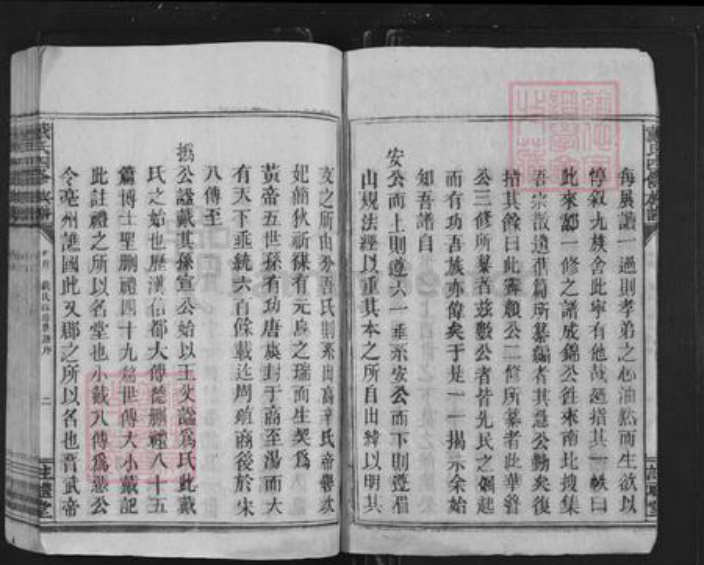 每展讀一過則孝弟之心油然而生欲以
惇敘九族舍此寧有他哉遞指其一帙曰
此來鄒一修之譜成錦公往來南北搜集
吾宗散遺舊簡所纂編者其意公勤矣復
指其餘曰此霖願公二修所纂者此華簪
公三修所纂者茲數公者皆先民之崛起
而有功吾族亦偉矣于是一一揭示余始
知吾譜自
安公而上則遵六一垂系安公而下則遵眉
山規法經以重其本之所自出緯以明其
支之所由分吾氏則系出高辛氏帝嚳次
妃簡狄祈禖有元鳥之瑞而生契爲
黃帝五世孫有功唐虞封于商至湯而大
有天下垂統六百餘載迄周殖商後於宋
八傳至
撝公諡戴其孫宣公始以王父諡爲氏此戴
氏之始也歷漢信都大傅德刪禮八十五
篇博士聖刪禮四十九篇世傳大小戴記
此註禮之所以名堂也小戴八傳爲憑公
令亳州譙國此又郡之所以名也晋武帝
戴氏四修族譜
戴氏
二
註禮堂